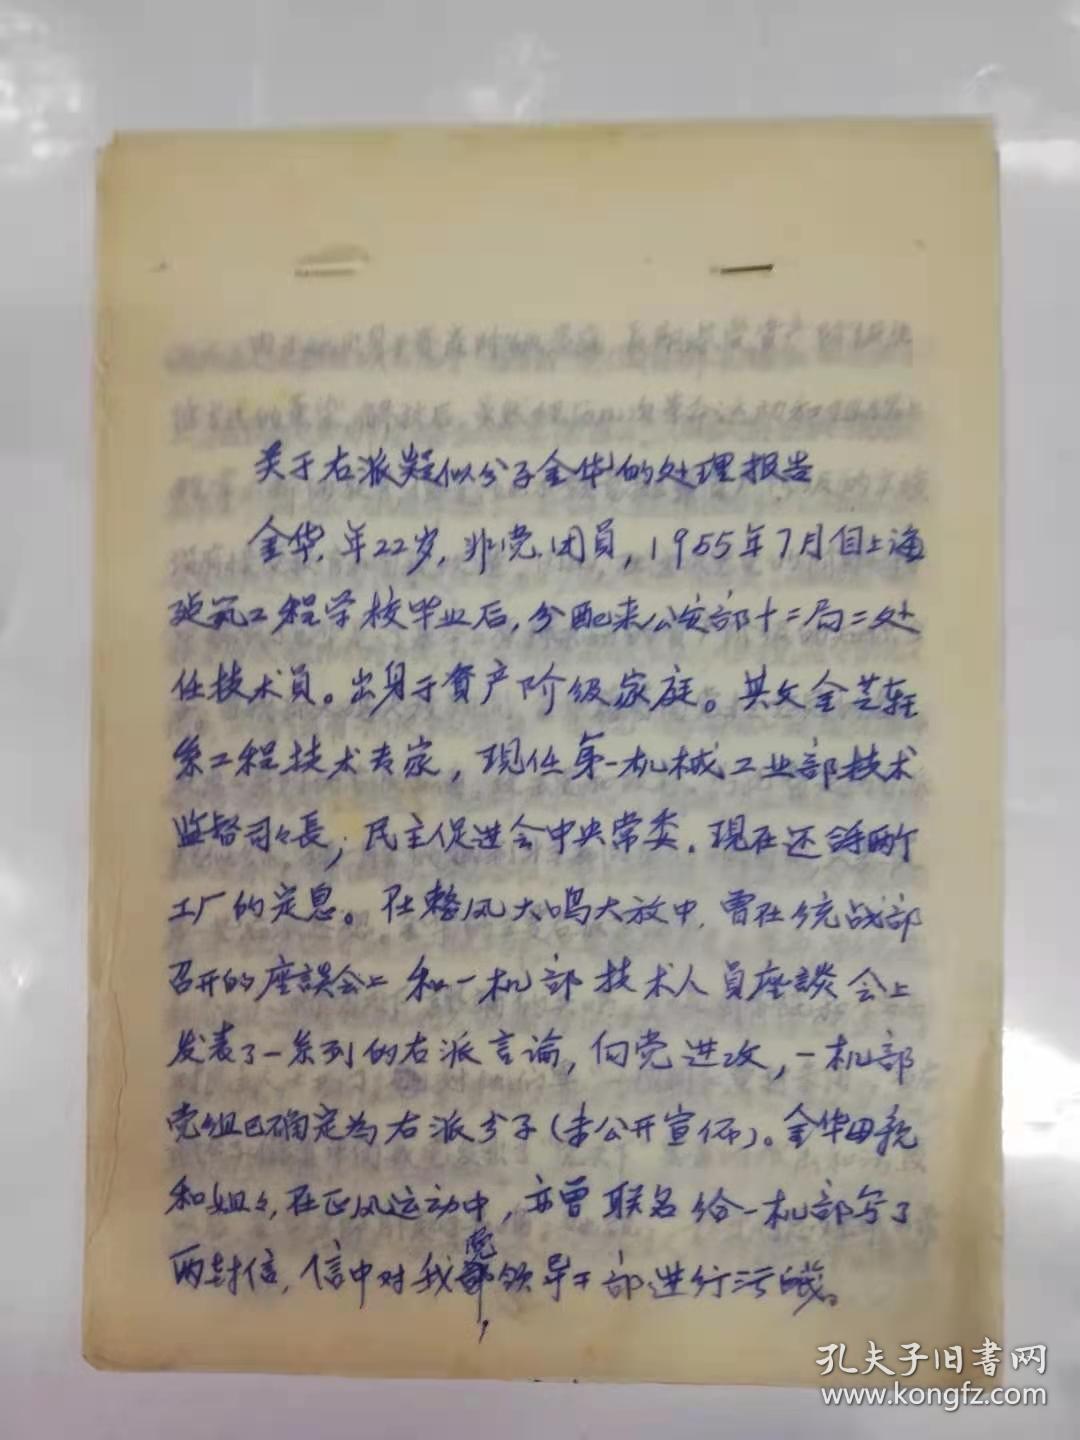 关于右派疑似分子金华的处理报告
金华,年22岁,非党、团员,1955年7月自上海
建筑工程学校毕业后,分配来公安部十二局二处
任技术员。出身于資产阶级家庭。其父金芝軒
系工程技术专家,現任第一机械工业部技术
监督司々長;民主促进会中央常委。現在还 两个
工厂的定息。在整风大鸣大放中,曾在统战部
召开的座談会上和一机部技术人员座談会上
发表了一系列的右派言论,向党进攻,一机部
党组已确定为右派分子(未公开宣佈)。金华母親
和姐々,在正风运动中,亦曾联名给一机部写了
两封信,信中对我党领导干部进行污蔑。
孔夫子旧書网
www.kongfz.com